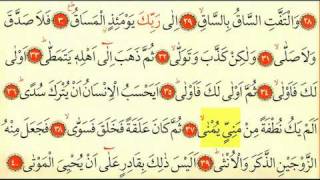 ﴿٢٨﴾ وَالْتَفَّتِ السَّاقُ بِالسَّاقِ ﴿٢٩﴾ اِلٰى رَبِّكَ يَوْمَئِذِ ۨالْمَسَاقُ ﴿٣٠﴾ فَلَا صَدَّقَ
وَلَا صَلّٰى ﴿٣١﴾ وَلٰكِنْ كَذَّبَ وَتَوَلّٰى ﴿٣٢﴾ ثُمَّ ذَهَبَ اِلٰٓى اَهْلِهٖ يَتَمَطّٰى ﴿٣٣﴾ اَوْلٰى
لَكَ فَاَوْلٰى ﴿٣٤﴾ ثُمَّ اَوْلٰى لَكَ فَاَوْلٰى ﴿٣٥﴾ اَيَحْسَبُ الْاِنْسَانُ اَنْ يُتْرَكَ سُدًى ﴿٣٦﴾
اَلَمْ يَكُ نُطْفَةً مِنْ مَنِيٍّ يُمْنٰى ﴿٣٧﴾ ثُمَّ كَانَ عَلَقَةً فَخَلَقَ فَسَوّٰى ﴿٣٨﴾ فَجَعَلَ مِنْهُ
الزَّوْجَيْنِ الذَّكَرَ وَالْاُنْثٰى ﴿٣٩﴾ اَلَيْسَ ذٰلِكَ بِقَادِرٍ عَلٰٓى اَنْ يُحْيِىَ الْمَوْتٰى ﴿٤٠﴾